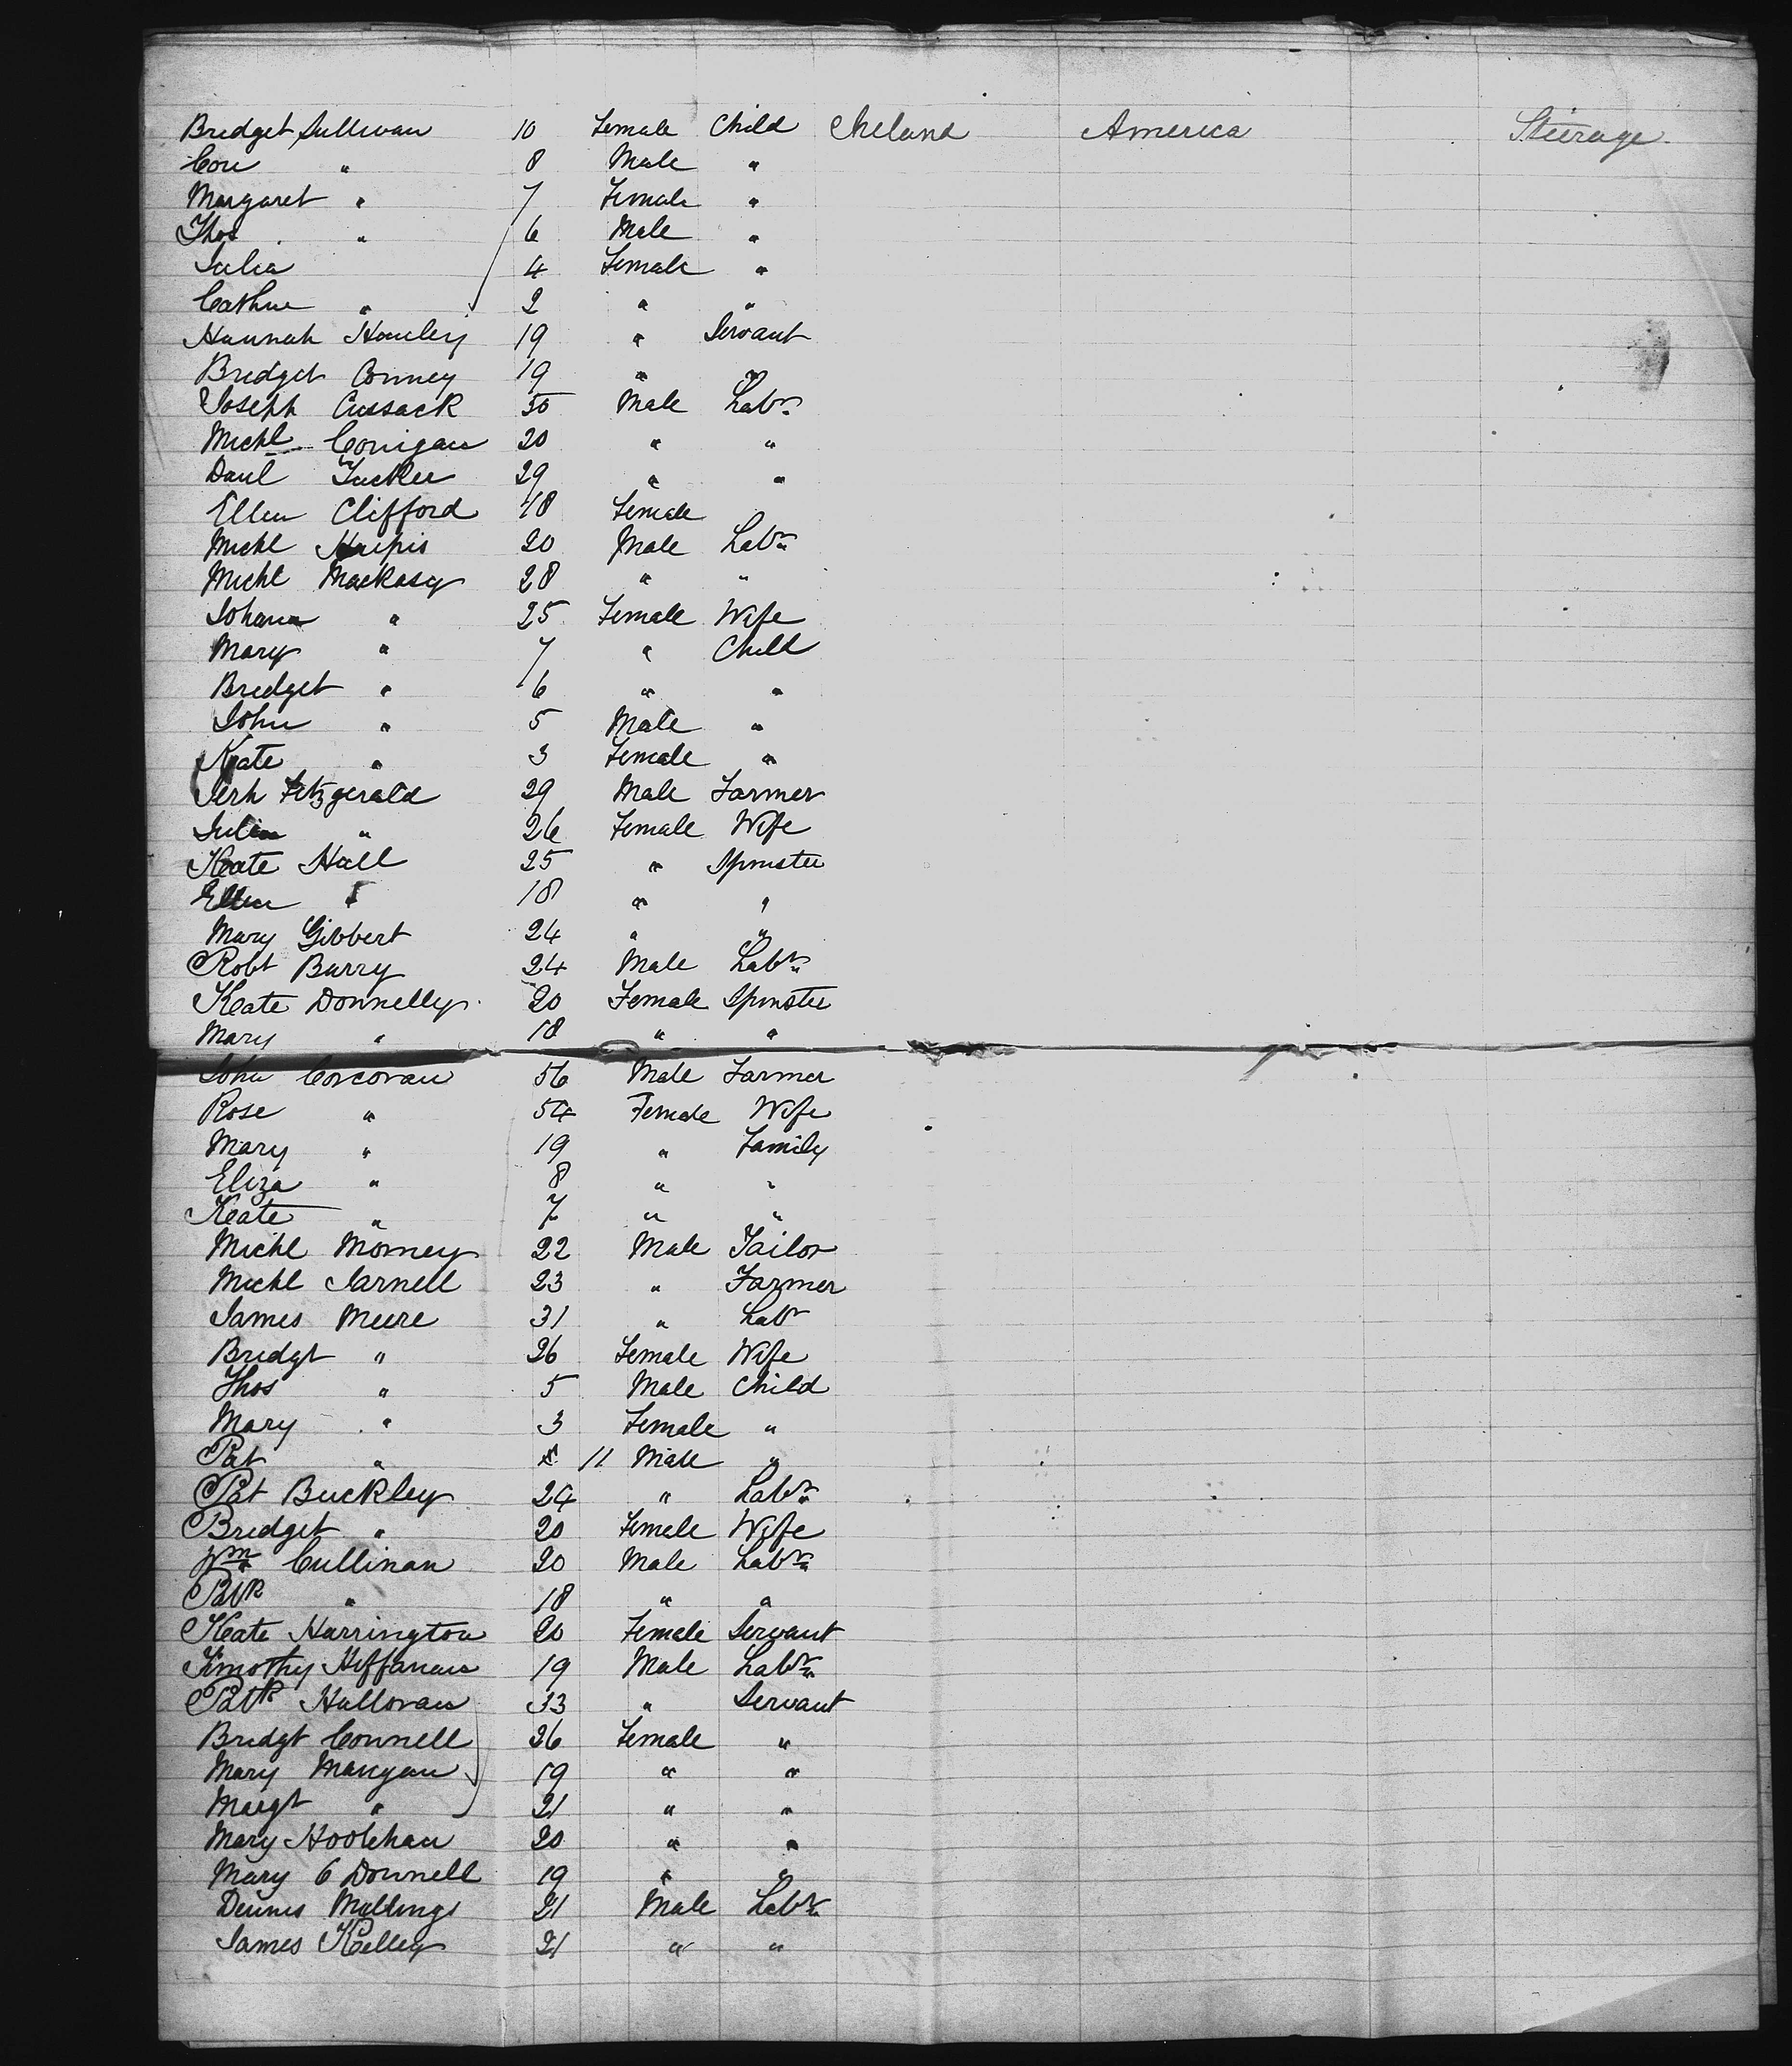 Bridget Sullivan 10 Female Child Ireland America Steerage
Con " 8 Male "
Margaret " 7 Female "
Thos " 6 Male "
Julia 4 Female "
Cathne " 2 " "
Hannah Hawley 19 " Servant
Bridget Conney 19 " "
Joseph Cussack 50 Male Labr
Michl Corrigan 20 " "
Danl Tucker 29 " "
Ellen Clifford 18 Female
Michl 20 Male Labr
Michl Mackasy 28 " "
Johana " 25 Female Wife
Mary " 7 " Child
Bridget " 6 " "
John " 5 Male "
Kate " 3 Female "
Jerh Fitzgerald 29 Male Farmer
Julia " 26 Female Wife
Kate Hall 25 " Spinster
Ellen " 18 " "
Mary Gibbert 24 " "
Robt Barry 24 Male Labr
Kate Donnelly 20 Female Spinster
Mary " 18 " "
John Corcoran 56 Male Farmer
Rose " 54 Female Wife
Mary " 19 " Family
Eliza " 8 " "
Kate " 7 " "
Michl Morney 22 Male Tailor
Michl Jarnell 23 " Farmer
James Meere 31 " Labr
Bridgt " 26 Female Wife
Thos " 5 Male Child
Mary " 3 Female "
Pat " 11 Male "
Pat Buckley 24 " Labr
Bridget " 20 Female Wife
Wm Cullinan 20 Male Labr
Patk " 18 " "
Kate Harrington 20 Female Servant
Timothy Heffanan 19 Male Labr
Patk Halloran 33 " Servant
Bridgt Connell 26 Female "
Mary Mangan 19 " "
Margt " 21 " "
Mary Hoolehan 20 " "
Mary O Donnell 19 " "
Dennis Mullings 21 Male Labr
James Kelley 21 " "